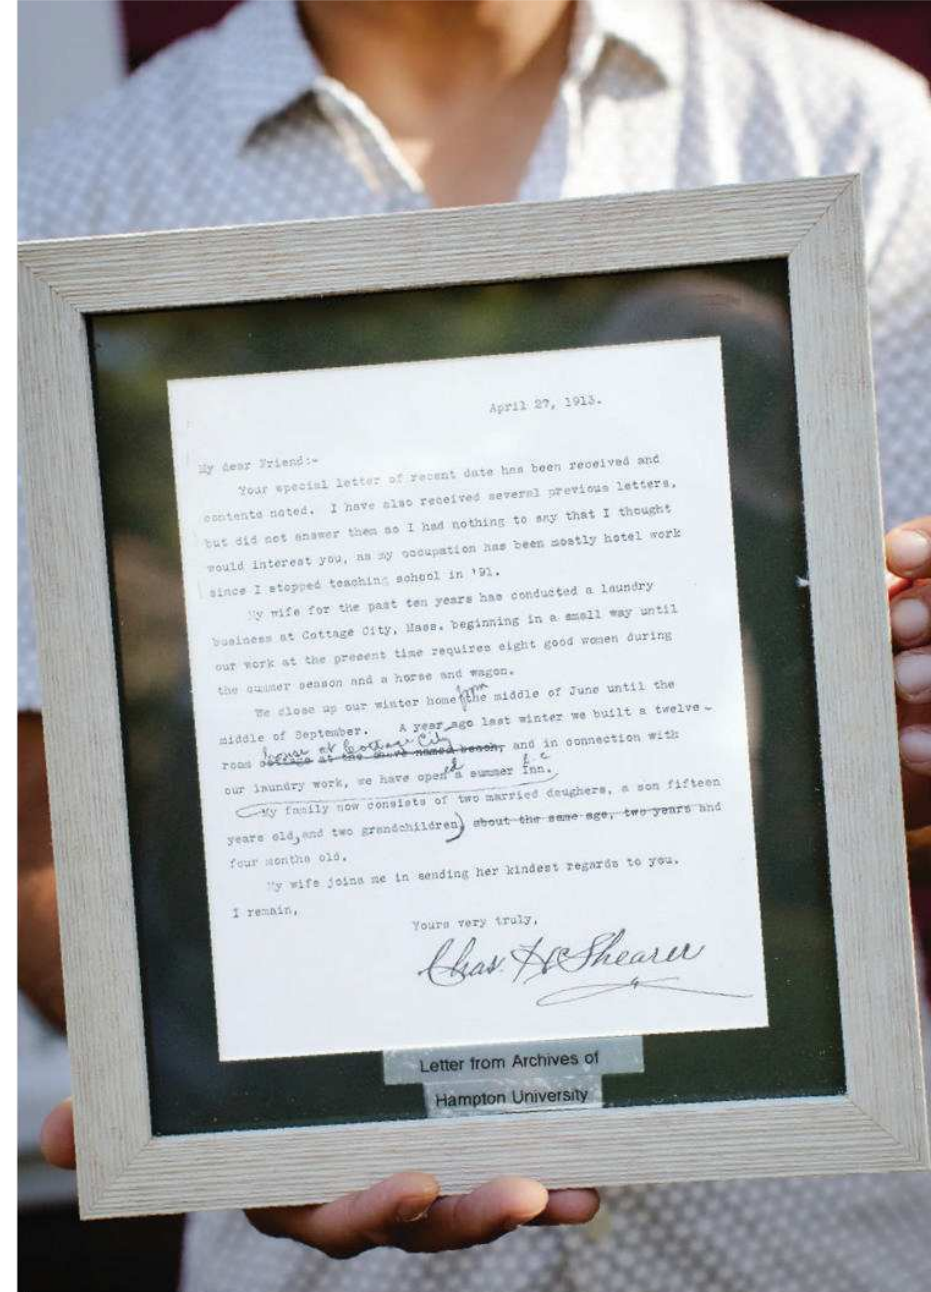 April 27, 1913.
My dear Friend:-
Your special letter of recent date has been received and
contents noted. I have also received several previous letters,
but did not answer them as I had nothing to say that I thought
would interest you, as my occupation has been mostly hotel work
since I stopped teaching school in '91.
My wife for the past ten years has conducted a laundry
business at Cottage City, Mass. beginning in a small way until
our work at the present time requires eight good women during
the summer season and a horse and wagon.
We close up our winter home from the middle of June until the
middle of September. A year ago last winter we built a twelve-
house at Cottage City
room cottage at the above named beach, and in connection with
our laundry work, we have opened a summer Inn.
My family now consists of two married daughers, a son fifteen
years old, and two grandchildren) about the same age, two years and
four months old.
My wife joins me in sending her kindest regards to you.
I remain,
Yours very truly,
Chas. H. Shearer
Letter from Archives of
Hampton University